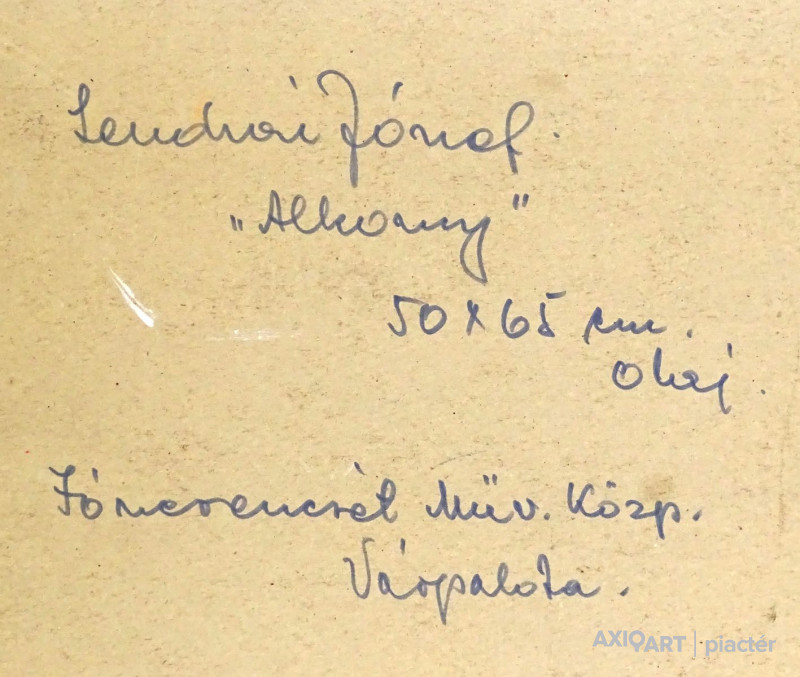 Lendvai József.
„Alkony”
50 x 65 cm.
Olaj.
Jószerencsét Műv. Közp.
Várpalota.
AXIOART | piactér